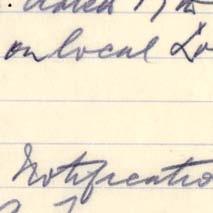 dated 17th
on local Lo
Notificatio